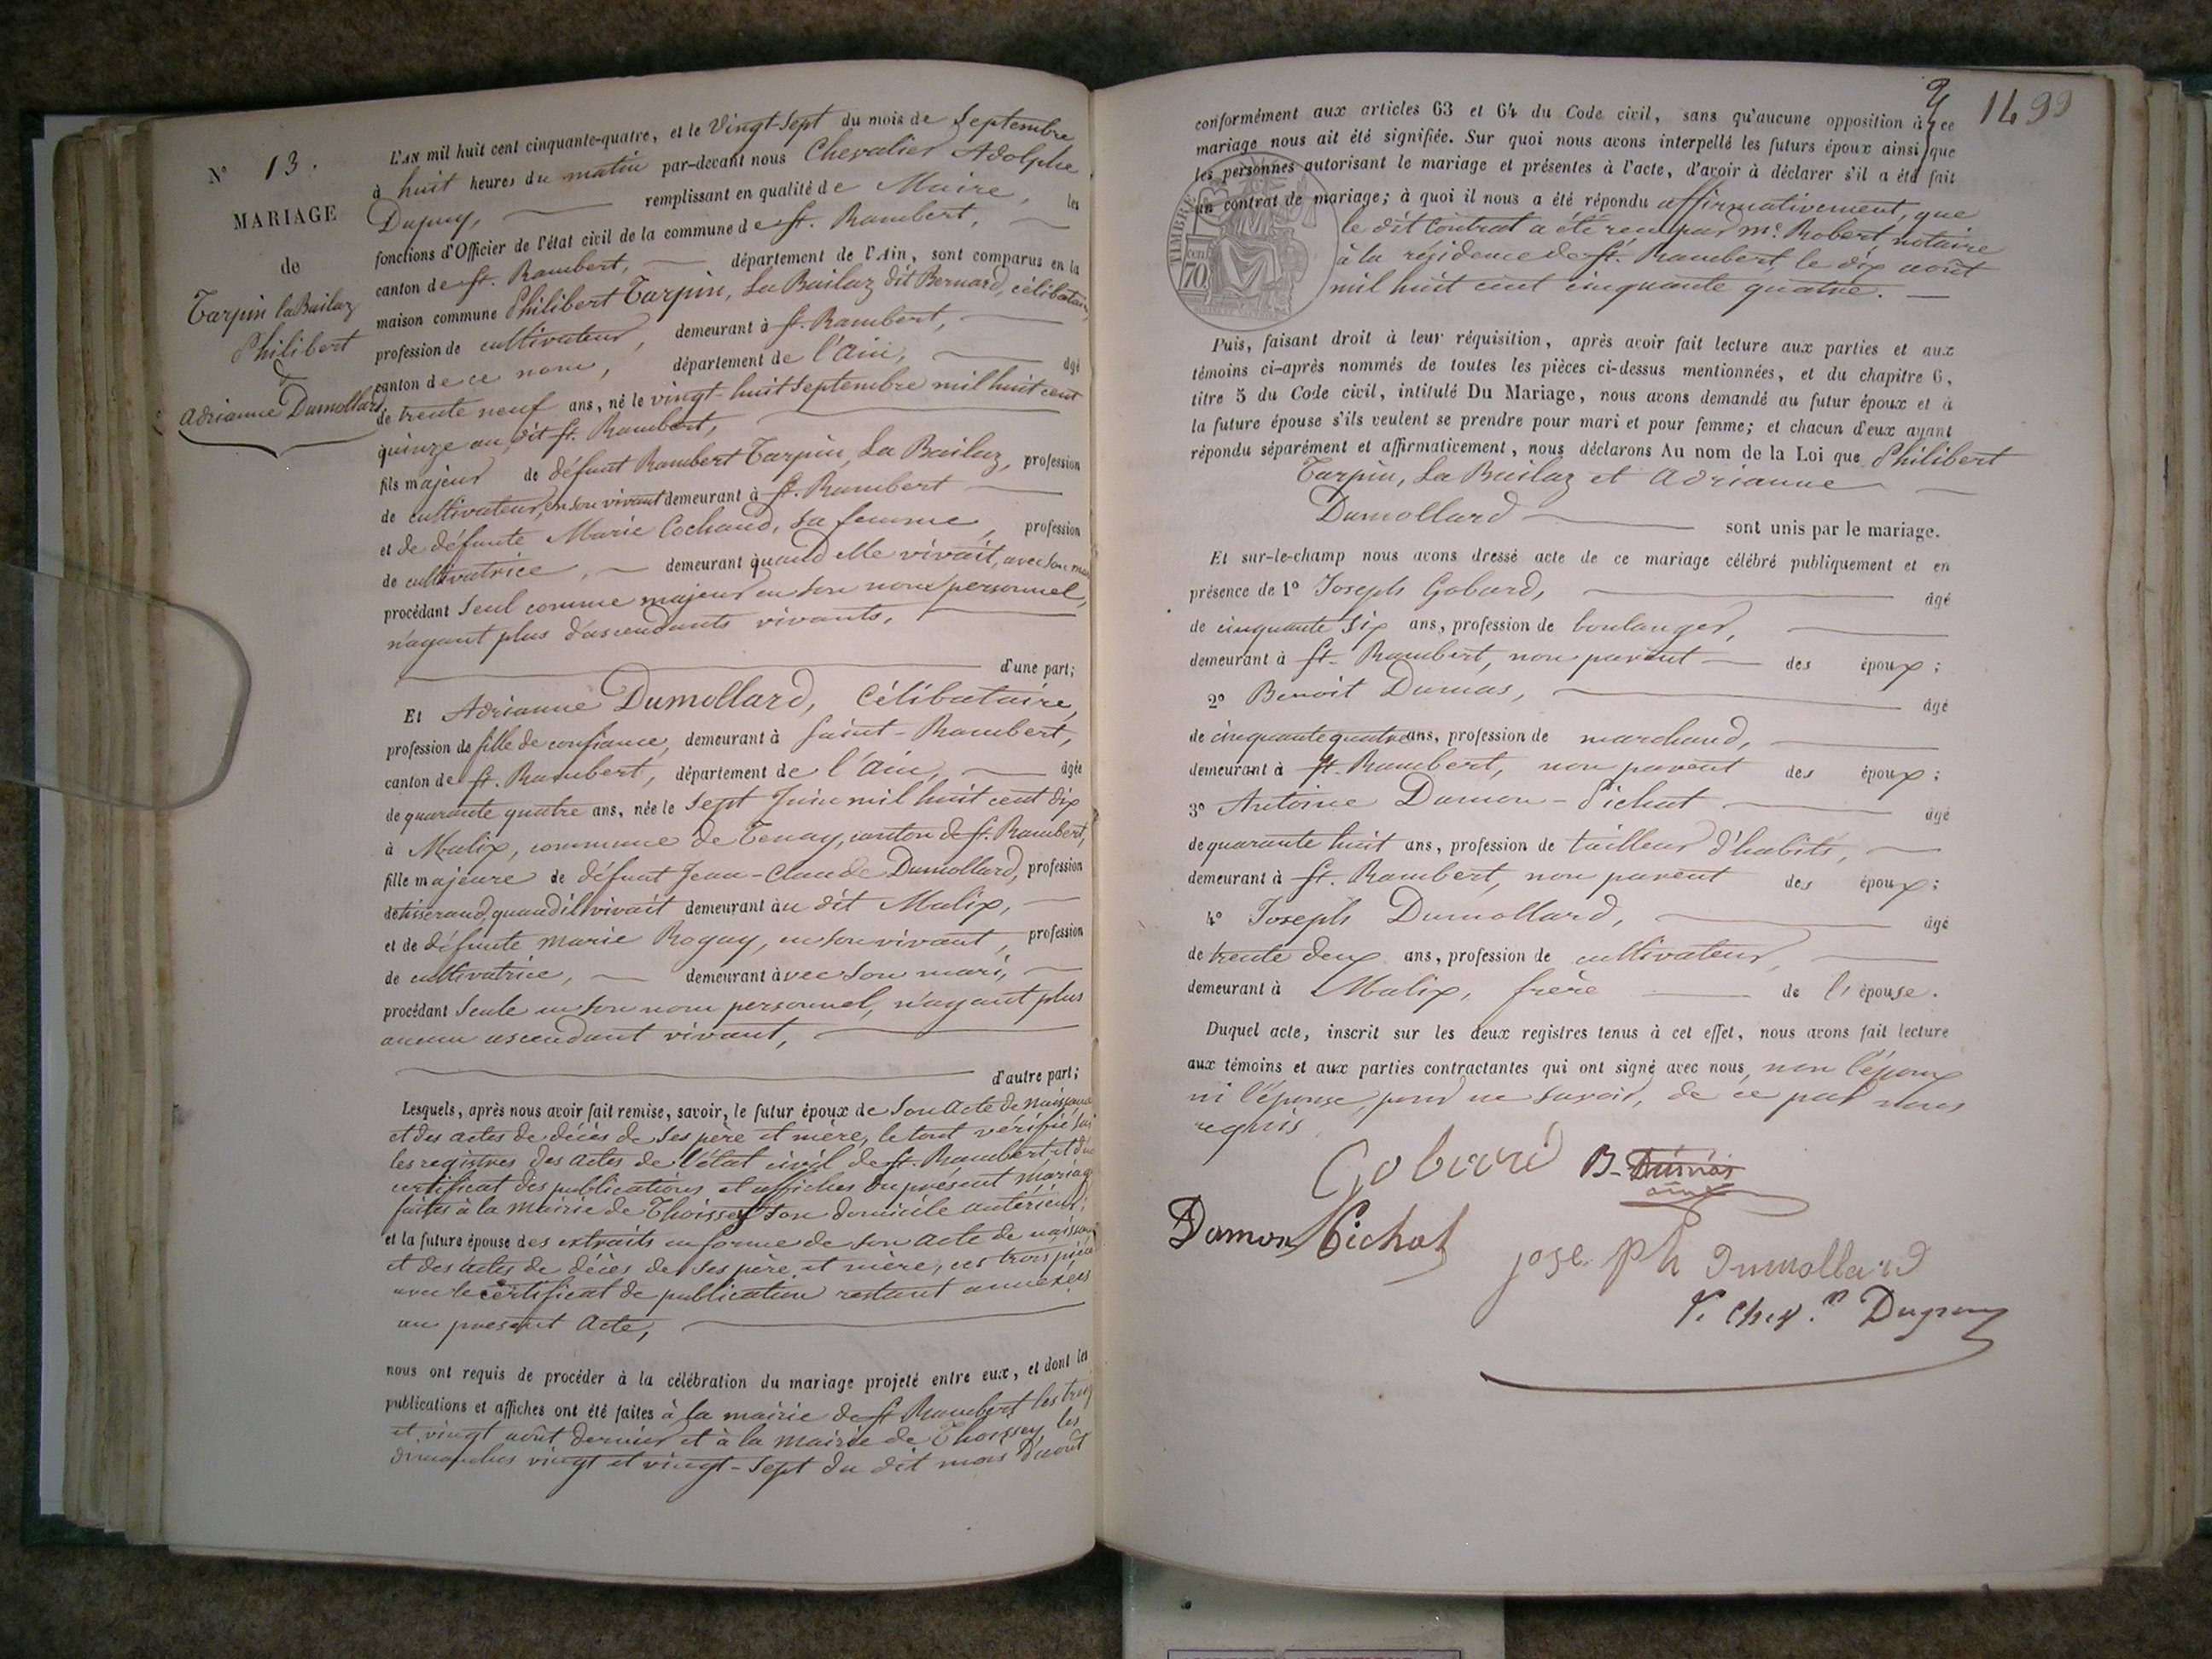 N° 13.
MARIAGE
de
Tarpin la Bailaz
Philibert
&
Adrianne Dumollard
L'AN mil huit cent cinquante-quatre, et le Vingt-Sept du mois de Septembre
à huit heures du matin par-devant nous Chevalier Adolphe
Dupuy, remplissant en qualité de Maire, les
fonctions d'Officier de l'état civil de la commune de St. Rambert,
canton de St. Rambert, département de l'Ain, sont comparus en la
maison commune Philibert Tarpin, La Bailaz dit Bernard, célibataire,
profession de cultivateur, demeurant à St. Rambert,
canton de ce nom, département de l'Ain, âgé
de trente neuf ans, né le vingt-huit septembre mil huit cent
quinze au dit St. Rambert,
fils majeur de défunt Rambert Tarpin, La Bailaz, profession
de cultivateur, en son vivant demeurant à St. Rambert
et de défunte Marie Cochand, sa femme, profession
de cultivatrice, demeurant quand elle vivait, avec son mari
procédant Seul comme majeur en son nom personnel,
n'ayant plus d'ascendants vivants,
d'une part;
Et Adrianne Dumollard, Célibataire,
profession de fille de confiance, demeurant à Saint-Rambert,
canton de St. Rambert, département de l'Ain, âgée
de quarante quatre ans, née le Sept Juin mil huit cent dix
à Malix, commune de Tenay, canton de St. Rambert,
fille majeure de défunt Jean-Claude Dumollard, profession
de tisserand, quand il vivait demeurant au dit Malix,
et de défunte Marie Rogay, en son vivant, profession
de cultivatrice, demeurant avec son mari,
procédant Seule en son nom personnel, n'ayant plus
aucun ascendant vivant,
d'autre part;
Lesquels, après nous avoir fait remise, savoir, le futur époux de Son Acte de Naissance
et des actes de décès de Ses père et mère, le tout vérifié sur
les registres des actes de l'état civil de St. Rambert et du
certificat des publications et affiches du présent mariage
faites à la mairie de Thoissey son domicile antérieur;
et la future épouse des extraits en forme de son acte de naissance
et des actes de décès de ses père et mère, ces trois pièces
avec le certificat de publication restant annexées
au présent Acte,
nous ont requis de procéder à la célébration du mariage projeté entre eux, et dont les
publications et affiches ont été faites à la mairie de St Rambert les treize
et vingt août dernier et à la Mairie de Thoissey les
dimanches vingt et vingt-Sept du dit mois d'août
1499
conformément aux articles 63 et 64 du Code civil, sans qu'aucune opposition à ce
mariage nous ait été signifiée. Sur quoi nous avons interpellé les futurs époux ainsi que
les personnes autorisant le mariage et présentes à l'acte, d'avoir à déclarer s'il a été fait
un contrat de mariage; à quoi il nous a été répondu affirmativement, que
le dit Contrat a été reçu par Me. Robert, notaire
à la résidence de St. Rambert, le dix août
mil huit cent cinquante quatre.
TIMBRE
70
Puis, faisant droit à leur réquisition, après avoir fait lecture aux parties et aux
témoins ci-après nommés de toutes les pièces ci-dessus mentionnées, et du chapitre 6,
titre 5 du Code civil, intitulé Du Mariage, nous avons demandé au futur époux et à
la future épouse s'ils veulent se prendre pour mari et pour femme; et chacun d'eux ayant
répondu séparément et affirmativement, nous déclarons Au nom de la Loi que Philibert
Tarpin, La Bailaz et Adrianne
Dumollard sont unis par le mariage.
Et sur-le-champ nous avons dressé acte de ce mariage célébré publiquement et en
présence de 1° Joseph Gobard, âgé
de cinquante six ans, profession de boulanger,
demeurant à St. Rambert, non parent des époux;
2° Benoit Dumas, âgé
de cinquante quatre ans, profession de marchand,
demeurant à St. Rambert, non parent des époux;
3° Antoine Damon-Pichat âgé
de quarante huit ans, profession de tailleur d'habits,
demeurant à St. Rambert, non parent des époux;
4° Joseph Dumollard, âgé
de trente deux ans, profession de cultivateur,
demeurant à Malix, frère de l'épouse.
Duquel acte, inscrit sur les deux registres tenus à cet effet, nous avons fait lecture
aux témoins et aux parties contractantes qui ont signé avec nous, non l'époux
ni l'épouse, pour ne savoir, de ce par nous
requis
Gobard B. Dumas
ainé
Damon Pichat
joseph Dumollard
Chev. Dupuy